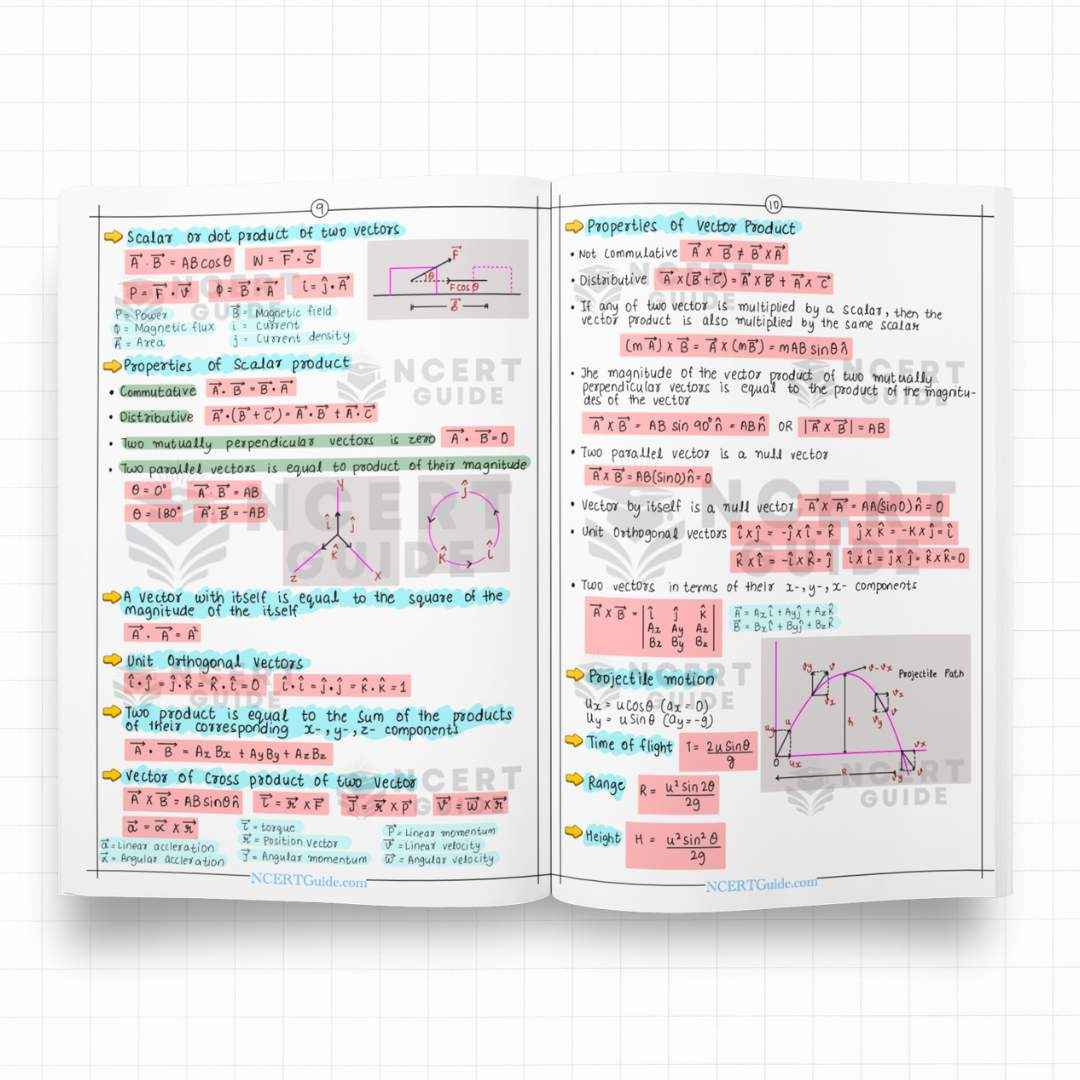 9
Scalar or dot product of two vectors
A⃗ · B⃗ = AB cosθ W = F⃗ · S⃗
P = F⃗ · V⃗ Φ = B⃗ · A⃗ i = j⃗ · A⃗
P = Power B⃗ = Magnetic field
Φ = Magnetic flux i = Current
A⃗ = Area j = Current density
F⃗
θ
F cos θ
Properties of Scalar product
• Commutative A⃗ · B⃗ = B⃗ · A⃗
• Distributive A⃗ · (B⃗ + C⃗) = A⃗ · B⃗ + A⃗ · C⃗
• Two mutually perpendicular vectors is zero A⃗ · B⃗ = 0
• Two parallel vectors is equal to product of their magnitude
θ = 0° A⃗ · B⃗ = AB
θ = 180° A⃗ · B⃗ = -AB
y
î ĵ
k̂
z x
ĵ
k̂ î
A vector with itself is equal to the square of the
magnitude of the itself
A⃗ · A⃗ = A²
Unit Orthogonal Vectors
î · ĵ = ĵ · k̂ = k̂ · î = 0 î · î = ĵ · ĵ = k̂ · k̂ = 1
Two product is equal to the sum of the products
of their corresponding x-, y-, z- components
A⃗ · B⃗ = Ax Bx + Ay By + Az Bz
Vector of Cross product of two Vector
A⃗ × B⃗ = AB sinθ n̂ τ⃗ = r⃗ × F⃗ J⃗ = r⃗ × p⃗ V⃗ = ω⃗ × r⃗
a⃗ = α⃗ × r⃗
τ⃗ = torque P⃗ = Linear momentum
a⃗ = Linear accleration r⃗ = Position vector V⃗ = Linear velocity
α⃗ = Angular accleration J⃗ = Angular momentum ω⃗ = Angular velocity
NCERTGuide.com
10
Properties of Vector Product
• Not Commutative A⃗ × B⃗ ≠ B⃗ × A⃗
• Distributive A⃗ × (B⃗ + C⃗) = A⃗ × B⃗ + A⃗ × C⃗
• If any of two vector is multiplied by a scalar, then the
vector product is also multiplied by the same scalar
(m A⃗) × B⃗ = A⃗ × (mB⃗) = mAB sinθ n̂
• The magnitude of the vector product of two mutually
perpendicular vectors is equal to the product of the magnitu-
des of the vector
A⃗ × B⃗ = AB sin 90° n̂ = ABn̂ OR |A⃗ × B⃗| = AB
• Two parallel vector is a null vector
A⃗ × B⃗ = AB(Sin0) n̂ = 0
• Vector by itself is a null vector A⃗ × A⃗ = AA(Sin0) n̂ = 0
• Unit Orthogonal vectors î × ĵ = -ĵ × î = k̂ ĵ × k̂ = -k × ĵ = î
k̂ × î = -î × k̂ = ĵ î × î = ĵ × ĵ = k̂ × k = 0
• Two vectors in terms of their x-, y-, x- components
A⃗ × B⃗ = | î ĵ k̂ | A⃗ = Ax î + Ay ĵ + Az k̂
| Ax Ay Az | B⃗ = Bx î + By ĵ + Bz k̂
| Bx By Bz |
Projectile motion
Ux = u cosθ (ax = 0)
Uy = u Sinθ (ay = -g)
Time of flight T = 2u Sinθ / g
Range R = u² sin 2θ / 2g
Height H = u² sin² θ / 2g
Projectile Path
vy v
vx
v = vx
vx
vy v
uy u
h
0 ux
R
vx
vy v
NCERTGuide.com
NCERT
GUIDE
NCERT
GUIDE
NCERT
GUIDE
NCERT
GUIDE